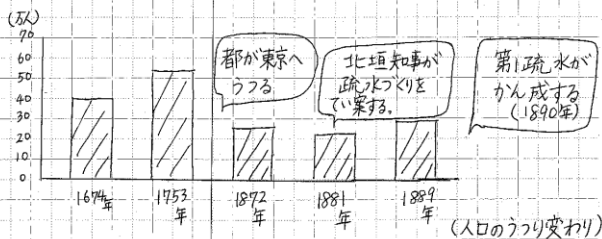 (万人)
70
60
50
40
30
20
10
0
都が東京へ
うつる
北垣知事が
疏水づくりを
てい案する。
第1疏水が
かん成する
(1890年)
1674年
1753
年
1872
年
1881
年
1889
年
(人口のうつり変わり)